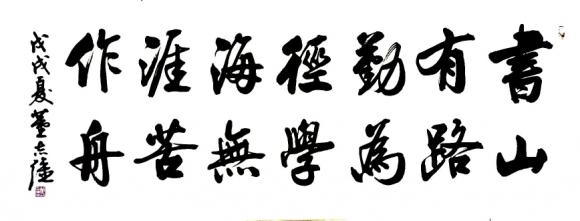 書山
有路
勤為
徑學
海無
涯苦
作舟
戊戌夏董志強